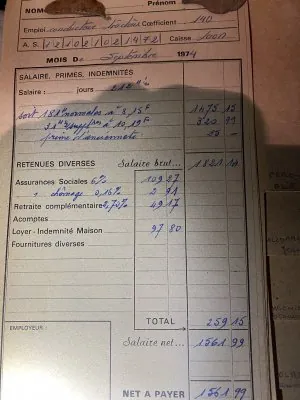 NOM
Prénom
Emploi conducteur Coefficient 190
A. S. 1 2 1 0 2 1 0 2 1 4 7 2 Caisse
MOIS DE Septembre 1974
SALAIRE, PRIMES, INDEMNITÉS
Salaire : jours 212
soit 181 normales à 8,15f 1475 15
31 à 10,19f 320 99
prime d'ancienneté 25 -
RETENUES DIVERSES Salaire brut... 1821 14
Assurances Sociales 6% 109 27
" chômage 0,16% 2 91
Retraite complémentaire 2,70% 49 17
Acomptes
Loyer - Indemnité Maison 97 80
Fournitures diverses
EMPLOYEUR:
TOTAL 259 15
Salaire net... 1561 99
NET A PAYER 1561.99